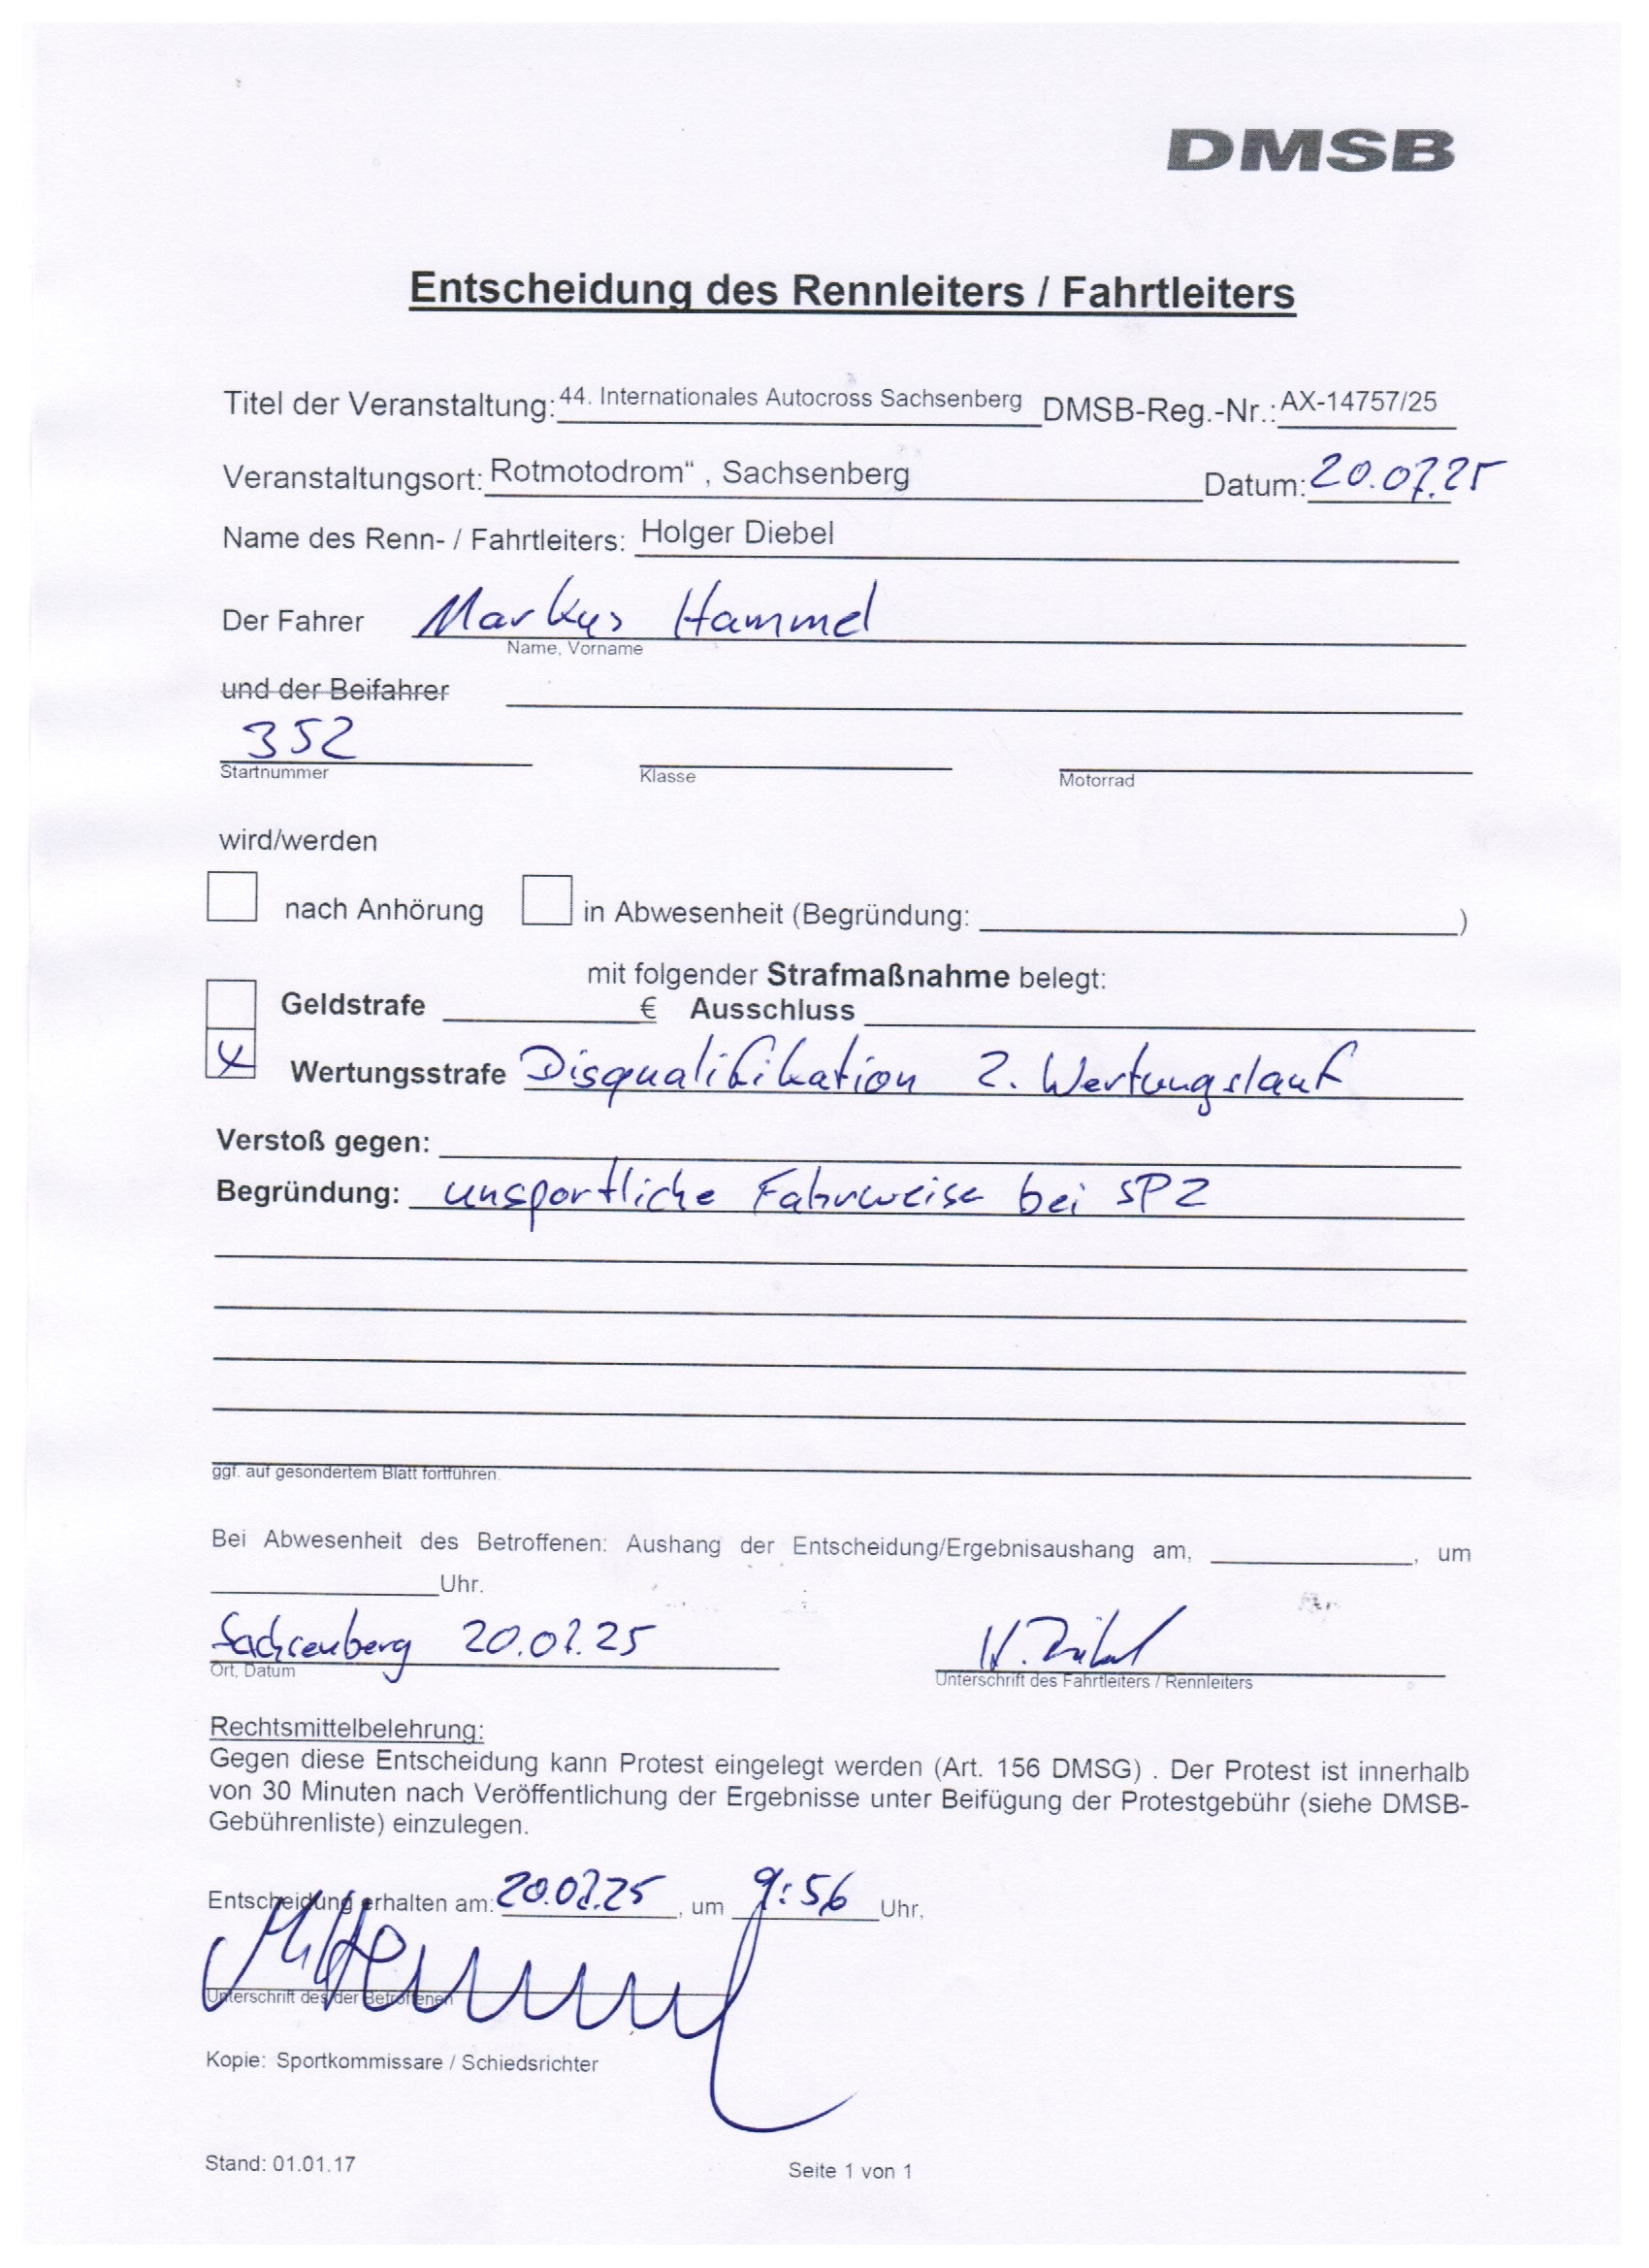 DMSB
Entscheidung des Rennleiters / Fahrtleiters
Titel der Veranstaltung: 44. Internationales Autocross Sachsenberg DMSB-Reg.-Nr.: AX-14757/25
Veranstaltungsort: Rotmotodrom“ , Sachsenberg Datum: 20.07.25
Name des Renn- / Fahrtleiters: Holger Diebel
Der Fahrer Markus Hammel
Name, Vorname
und der Beifahrer
352
Startnummer Klasse Motorrad
wird/werden
nach Anhörung in Abwesenheit (Begründung: )
mit folgender Strafmaßnahme belegt:
Geldstrafe € Ausschluss
X Wertungsstrafe Disqualifikation 2. Wertungslauf
Verstoß gegen:
Begründung: unsportliche Fahrweise bei SP2
ggf. auf gesondertem Blatt fortführen.
Bei Abwesenheit des Betroffenen: Aushang der Entscheidung/Ergebnisaushang am, , um
Uhr.
Sachsenberg 20.07.25 H. Diebel
Ort, Datum Unterschrift des Fahrtleiters / Rennleiters
Rechtsmittelbelehrung:
Gegen diese Entscheidung kann Protest eingelegt werden (Art. 156 DMSG) . Der Protest ist innerhalb
von 30 Minuten nach Veröffentlichung der Ergebnisse unter Beifügung der Protestgebühr (siehe DMSB-
Gebührenliste) einzulegen.
Entscheidung erhalten am: 20.07.25, um 9:56 Uhr,
Unterschrift des/der Betroffenen
Kopie: Sportkommissare / Schiedsrichter
Stand: 01.01.17 Seite 1 von 1